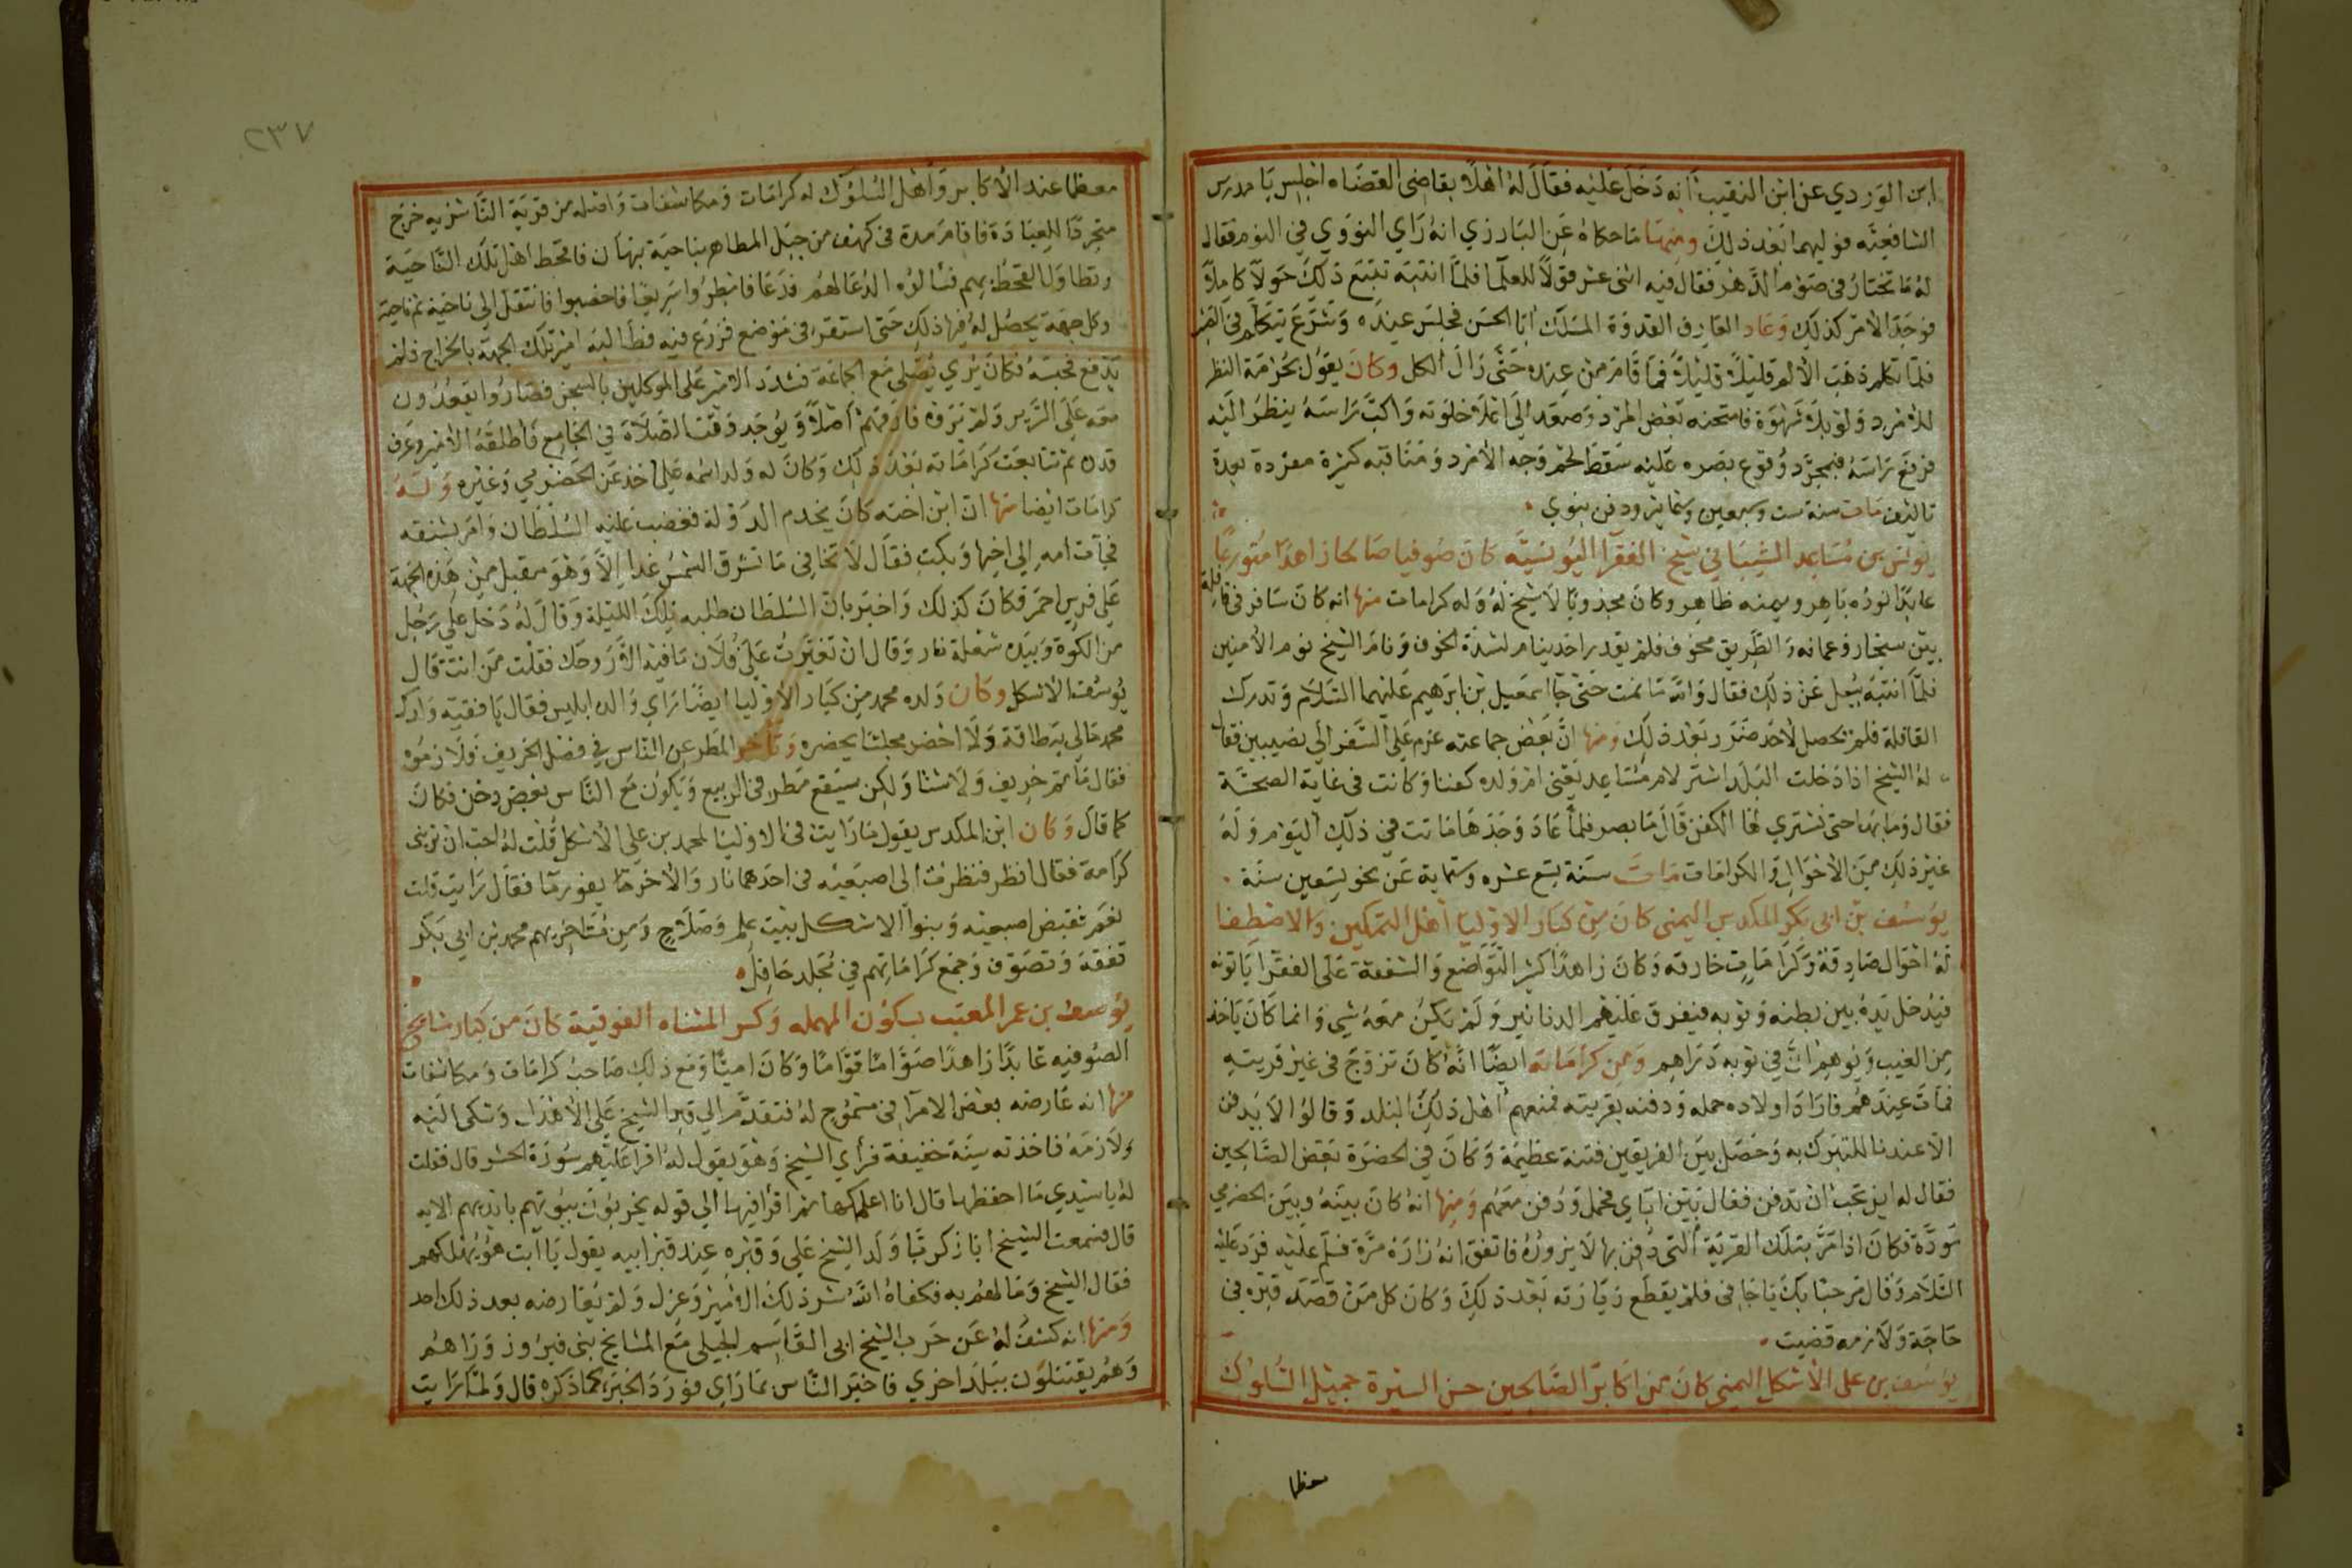 ابن الوردي عن ابن النقيب أنه دخل عليه فقال له اهلا بقاضى القضاه اجلس يا مدرس
الشافعيه فوليهما بعد ذلك ومنها ما حكاه عن البارزي انه راي النووي في النوم فقال
له ما تختار في صوم الدهر فقال فيه اثنى عشر قولا للعلما فلما انتبه تتبع ذلك حولا كاملا
فوجد الامر كذلك وعاد العارف القدوة المسلك ابا الحسن فجلس عنده وشرع يتكلم في
فلما تكلم ذهب الألم قليلا قليلا فما قام من عنده حتى زال الكل وكان يقول بحرمة النظر
للامرد ولو بلا شهوة فامتحنه بعض المرد وصعد الى اعلا خلوته واكب راسه ينظر اليه
فرفع راسه فبمجرد وقوع بصره عليه سقط لحم وجه الامرد ومناقبه كثيرة مفردة بعدة
تاليف مات سنة ست وسبعين وستمايه ودفن بنوي
يونس بن مساعد الشيباني شيخ الفقرا اليونسيه كان صوفيا صالحا زاهدا متورعا
عابدا نوره باهر ويمنه ظاهر وكان مجذوبا لا شيخ له وله كرامات منها انه كان سافر في قافلة
بين سنجار وعانه والطريق مخوف فلم يقدر احد ينام لشدة الخوف ونام الشيخ نوم الأمنين
فلما انتبه سئل عن ذلك فقال والله ما نمت حتى جا اسمعيل بن ابرهيم عليهما السلام وتدرك
القافلة فلم يحصل لاحد ضرر بعد ذلك ومنها ان بعض جماعته عزم على السفر الى نصيبين فقال
له الشيخ اذا دخلت البلد اشتر لام مساعد يعنى ام ولده كفنا وكانت في غاية الصحة
فقال وما بها حتى نشتري لها الكفن قال ما يضر فلما عاد وجدها ماتت في ذلك اليوم وله
غير ذلك من الاحوال والكرامات مات سنة تسع عشره وستماية عن نحو تسعين سنة
يوسف بن ابي بكر المكدس اليمنى كان من كبار الاوليا اهل التمكين والاصطفا
له احوال صادقة وكرامات خارقه وكان زاهدا كثير التواضع والشفقة على الفقرا ياتونه
فيدخل يده بين بطنه وثوبه فينفرق عليهم الدنانير ولم يكن معه شي وانما كان ياخذ
من الغيب ويوهم ان في ثوبه دراهم ومن كراماته ايضا انه كان تزوج في غير قريته
فمات عندهم فاراد اولاده حمله ودفنه بقريته فمنعهم اهل ذلك البلد وقالوا لا يدفن
الا عندنا للتبرك به وحصل بين الفريقين فتنة عظيمة وكان في الحضرة بعض الصالحين
فقال له اين تحب ان تدفن فقال بين اباي فحمل ودفن معهم ومنها انه كان بينه وبين الحضرمي
مودة فكان اذا مر بتلك القرية التي دفن بها لا يزوره فاتفق انه زاره مرة فسلم عليه فرد عليه
السلام وقال مرحبا بك يا جافى فلم يقطع زيارته بعد ذلك وكان كل من قصد قبره في
حاجة ولازمه قضيت
يوسف بن على الاشكل اليمنى كان من اكابر الصالحين حسن السيرة جميل السلوك
معظما
٢٣٧
معظما عند الأكابر واهل السلوك له كرامات ومكاشفات واصله من قرية الناشريه خرج
متجردا للعبادة فاقام مدة في كهف من جبل المطاهر بناحية تيهان فامحط اهل تلك الناحية
وتطاول القحط بهم فسالوه الدعا لهم فدعا فامطروا سريعا فاخصبوا فانتقل الى ناحية ثم ناحية
وكل جهة يحصل له فيها ذلك حتى استقر في موضع فزرع فيه فطالبه امير تلك الجهة بالخراج فلم
يدفع فحبسه فكان يري يصلى مع الجماعة فشدد الامير على الموكلين بالسجن فصاروا يقعدون
معه على الترس ولم نرقه فارقهم اصلا ويوجد وقت الصلاة في الجامع فاطلقه الامير وعرف
قدره ثم تتابعت كراماته بعد ذلك وكان له ولد اسمه على اخذ عن الحضرمي وغيره وله
كرامات ايضا منها ان ابن اخته كان يخدم الدولة فغضب عليه السلطان وامر بشنقه
فجات امه الى اخيها وبكت فقال لا تخافى ما تشرق الشمس غدا الا وهو مقبل من هذه الجهة
على فرس احمر فكان كذلك واخبر بان السلطان طلبه تلك الليلة وقال له دخل على رجل
من الكوة وبيده شعلة نار وقال ان تغيرت على فلان ما فيه الا روحك فقلت من انت قال
يوسف الاشكل وكان ولده محمد من كبار الاوليا ايضا راي والده ابليس فقال يا فقيه وادك
محمد مالي به طاقة ولا احضر مجلسا يحضره وتاخر المطر عن الناس في فصل الخريف فلازموه
فقال ما ثم خريف ولا شتا ولكن سيقع مطر في الربيع ويكون مع الناس بعض دخن فكان
كما قال وكان ابن المكدس يقول ما رايت في الاوليا لمحمد بن على الأشكل قلت له احب ان تريني
كرامة فقال انظر فنظرت الى اصبعيه في احدهما نار والاخر ما يفور ما فقال رايت قلت
نعم فقبض اصبعيه وبنوا الاشكل بيت علم وصلاح ومن متاخريهم محمد بن ابي بكر
تفقه وتصوف وجمع كراماتهم في مجلد حافل
يوسف بن عمر المعتب بسكون المهمله وكسر المثناه الفوقية كان من كبار مشايخ
الصوفيه عابدا زاهدا صواما قواما وكان اميا ومع ذلك صاحب كرامات ومكاشفات
منها انه عارضه بعض الامرا في مسموح له فتقدم الى قبر الشيخ على الأهدل وشكى اليه
ولازمه فاخذته سنة خفيفة فرأي الشيخ وهو يقول له اقرا عليهم سورة الحشر قال فقلت
له يا سيدي ما احفظها قال انا اعلمكها ثم اقرأ فيها الى قوله يخربون بيوتهم بايديهم الايه
قال فسمعت الشيخ ابا زكريا ولد الشيخ على وقبره عند قبر ابيه يقول يا ابت هو يهلكهم
فقال الشيخ وما لهم به فكفاه الله شر ذلك الامير وعزل ولم يعارضه بعد ذلك احد
ومنها انه كشف له عن حرب الشيخ ابي القاسم الجيلى مع المشايخ بنى فيروز وراهم
وهم يقتتلون ببلد اخري فاخبر الناس بما راي فورد الخبر كما ذكره قال ولما رايت